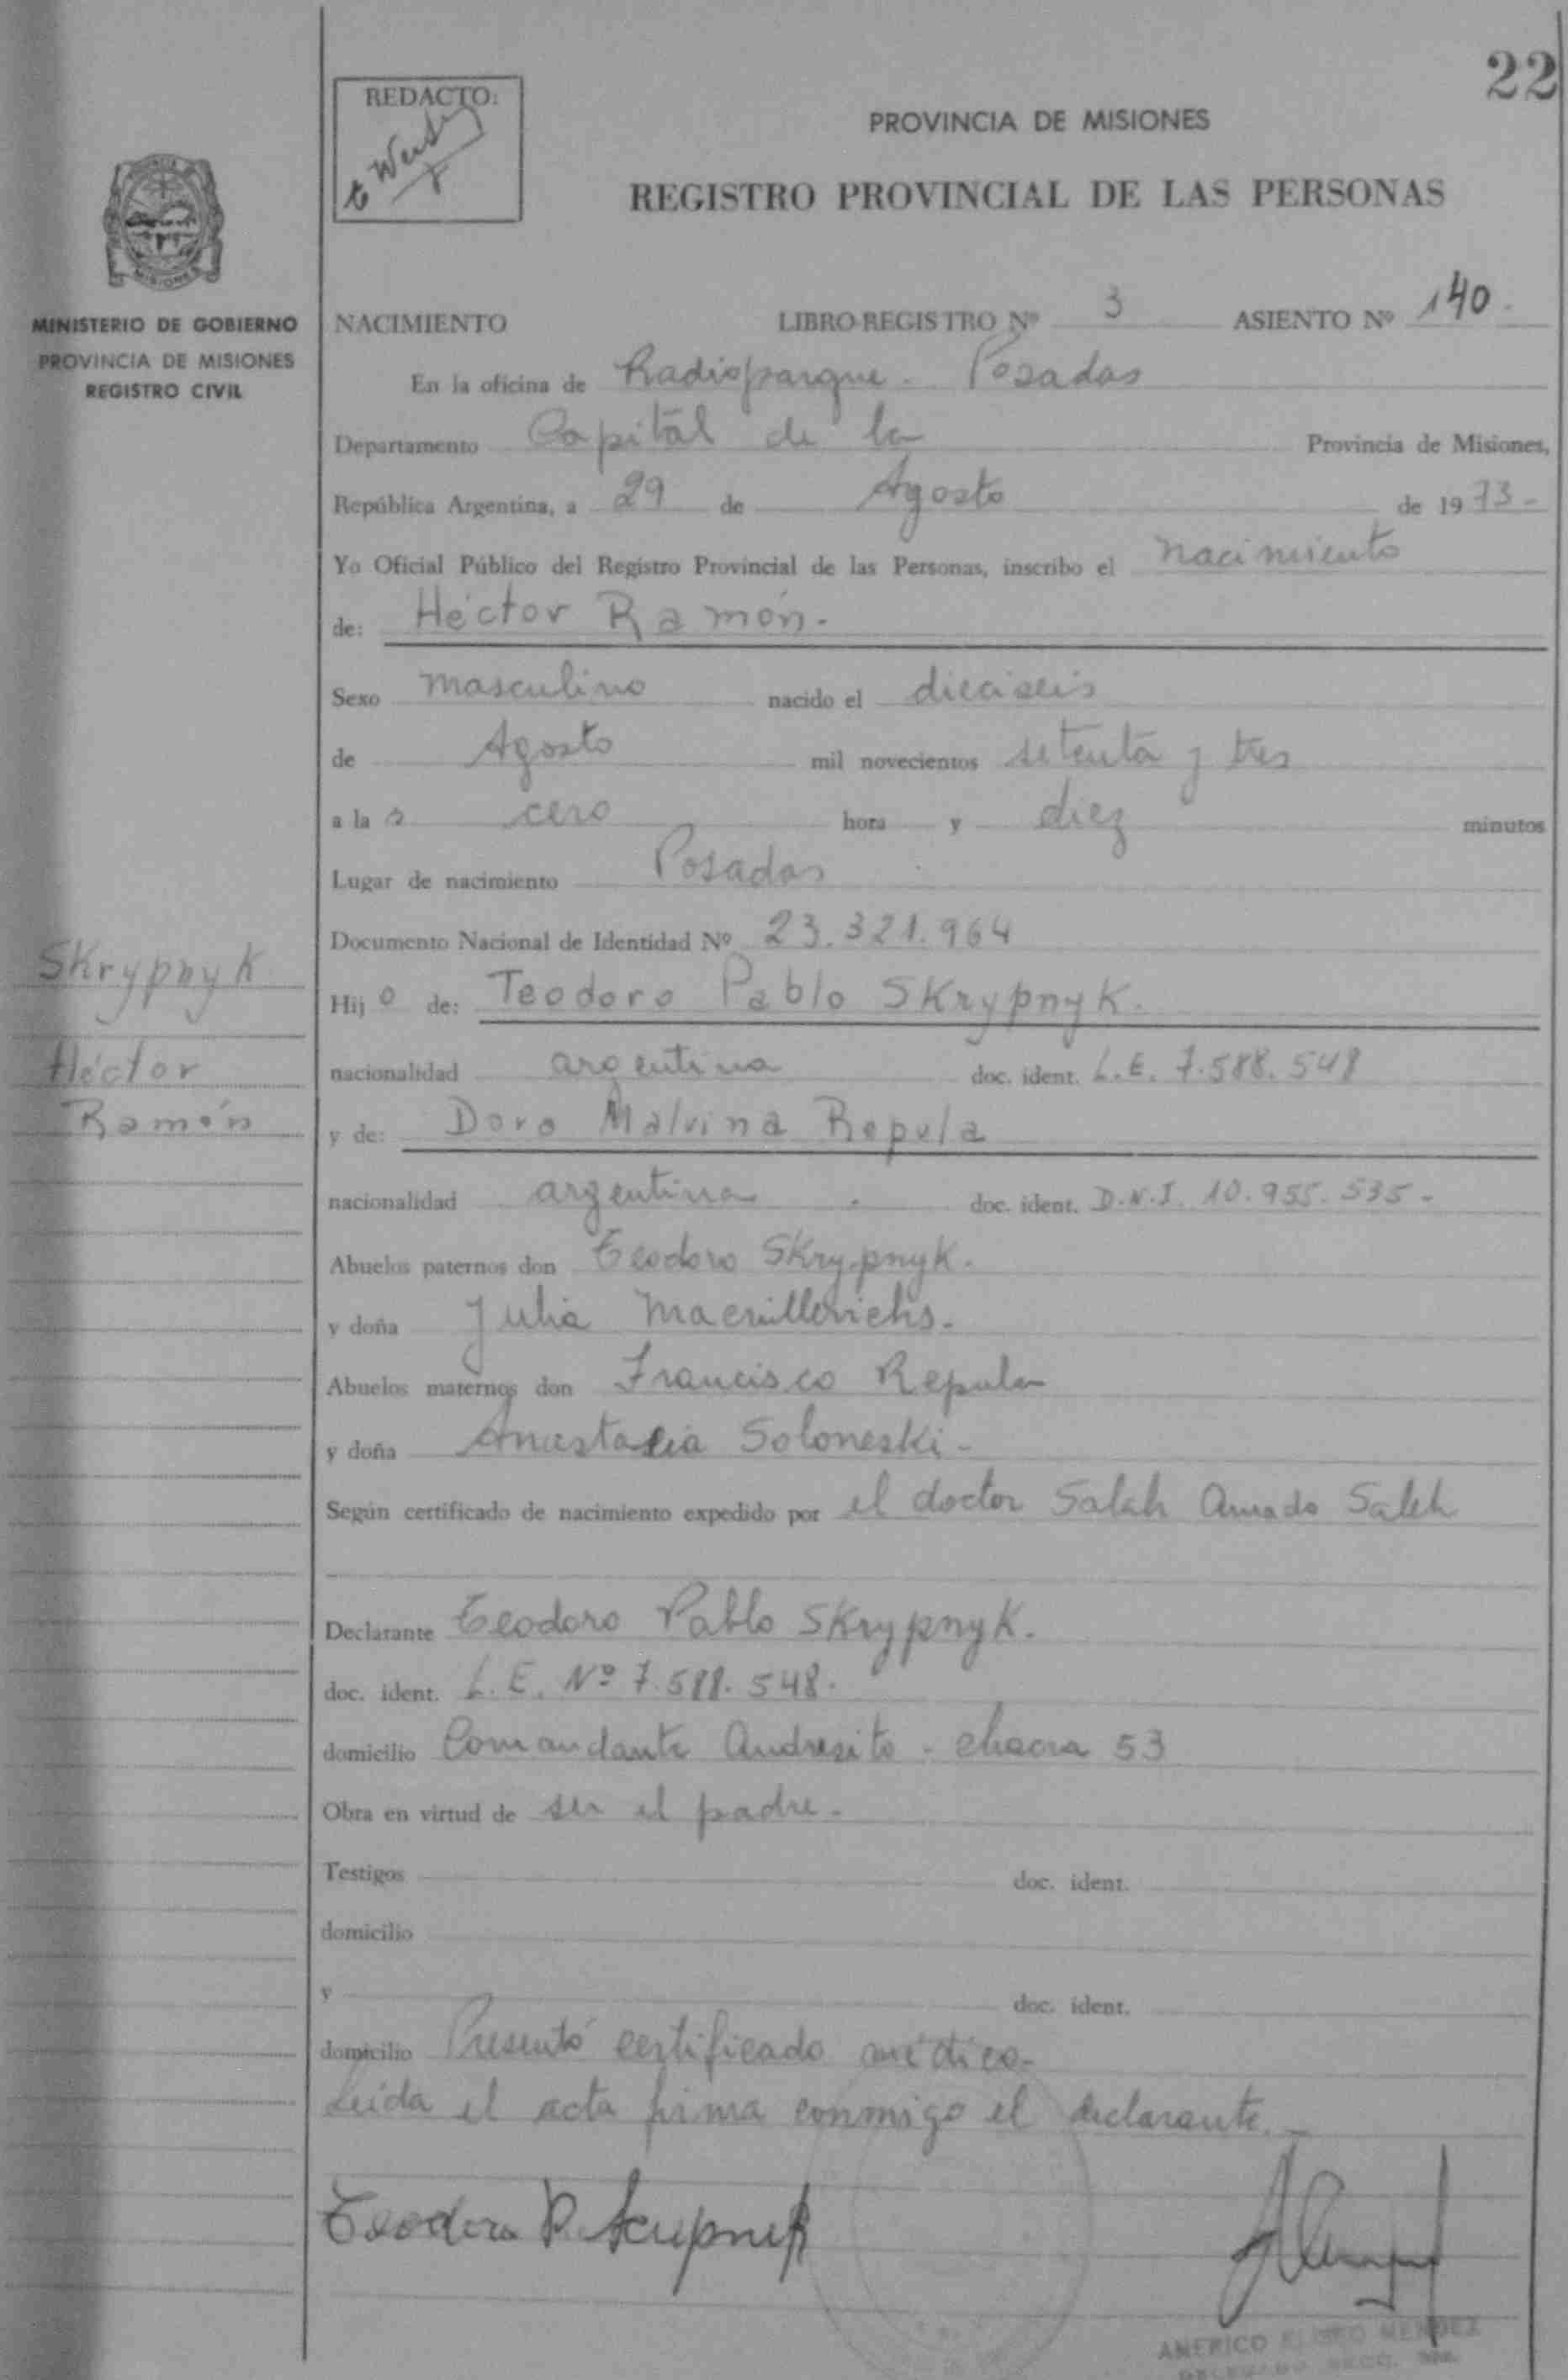 22
REDACTO:
PROVINCIA DE MISIONES
REGISTRO PROVINCIAL DE LAS PERSONAS
MINISTERIO DE GOBIERNO
PROVINCIA DE MISIONES
REGISTRO CIVIL
NACIMIENTO LIBRO REGISTRO Nº 3 ASIENTO Nº 140.
En la oficina de Radioparque - Posadas
Departamento Capital de la Provincia de Misiones,
República Argentina, a 29 de Agosto de 1973-
Yo Oficial Público del Registro Provincial de las Personas, inscribo el nacimiento
de: Héctor Ramón.
Sexo masculino nacido el dieciseis
de Agosto mil novecientos setenta y tres
a las cero hora y diez minutos
Lugar de nacimiento Posadas
Documento Nacional de Identidad Nº 23.321.964
Skrypnyk
Héctor
Ramón
Hijo de: Teodoro Pablo Skrypnyk.
nacionalidad argentina doc. ident. L.E. 7.588.548
y de: Dora Malvina Repula
nacionalidad argentina . doc. ident. D.N.I. 10.955.535-
Abuelos paternos don Teodoro Skrypnyk.
y doña Julia
Abuelos maternos don Francisco Repula
y doña Anastasia Soloneski-
Según certificado de nacimiento expedido por el doctor Salah Amado Saleh
Declarante Teodoro Pablo Skrypnyk.
doc. ident. L.E. Nº 7.588.548.
domicilio Comandante Andresito - chacra 53
Obra en virtud de ser el padre-
Testigos doc. ident.
domicilio
y doc. ident.
domicilio Presentó certificado médico-
Leída el acta firma conmigo el declarante.-
Teodoro P.
AMERICO MENDEZ